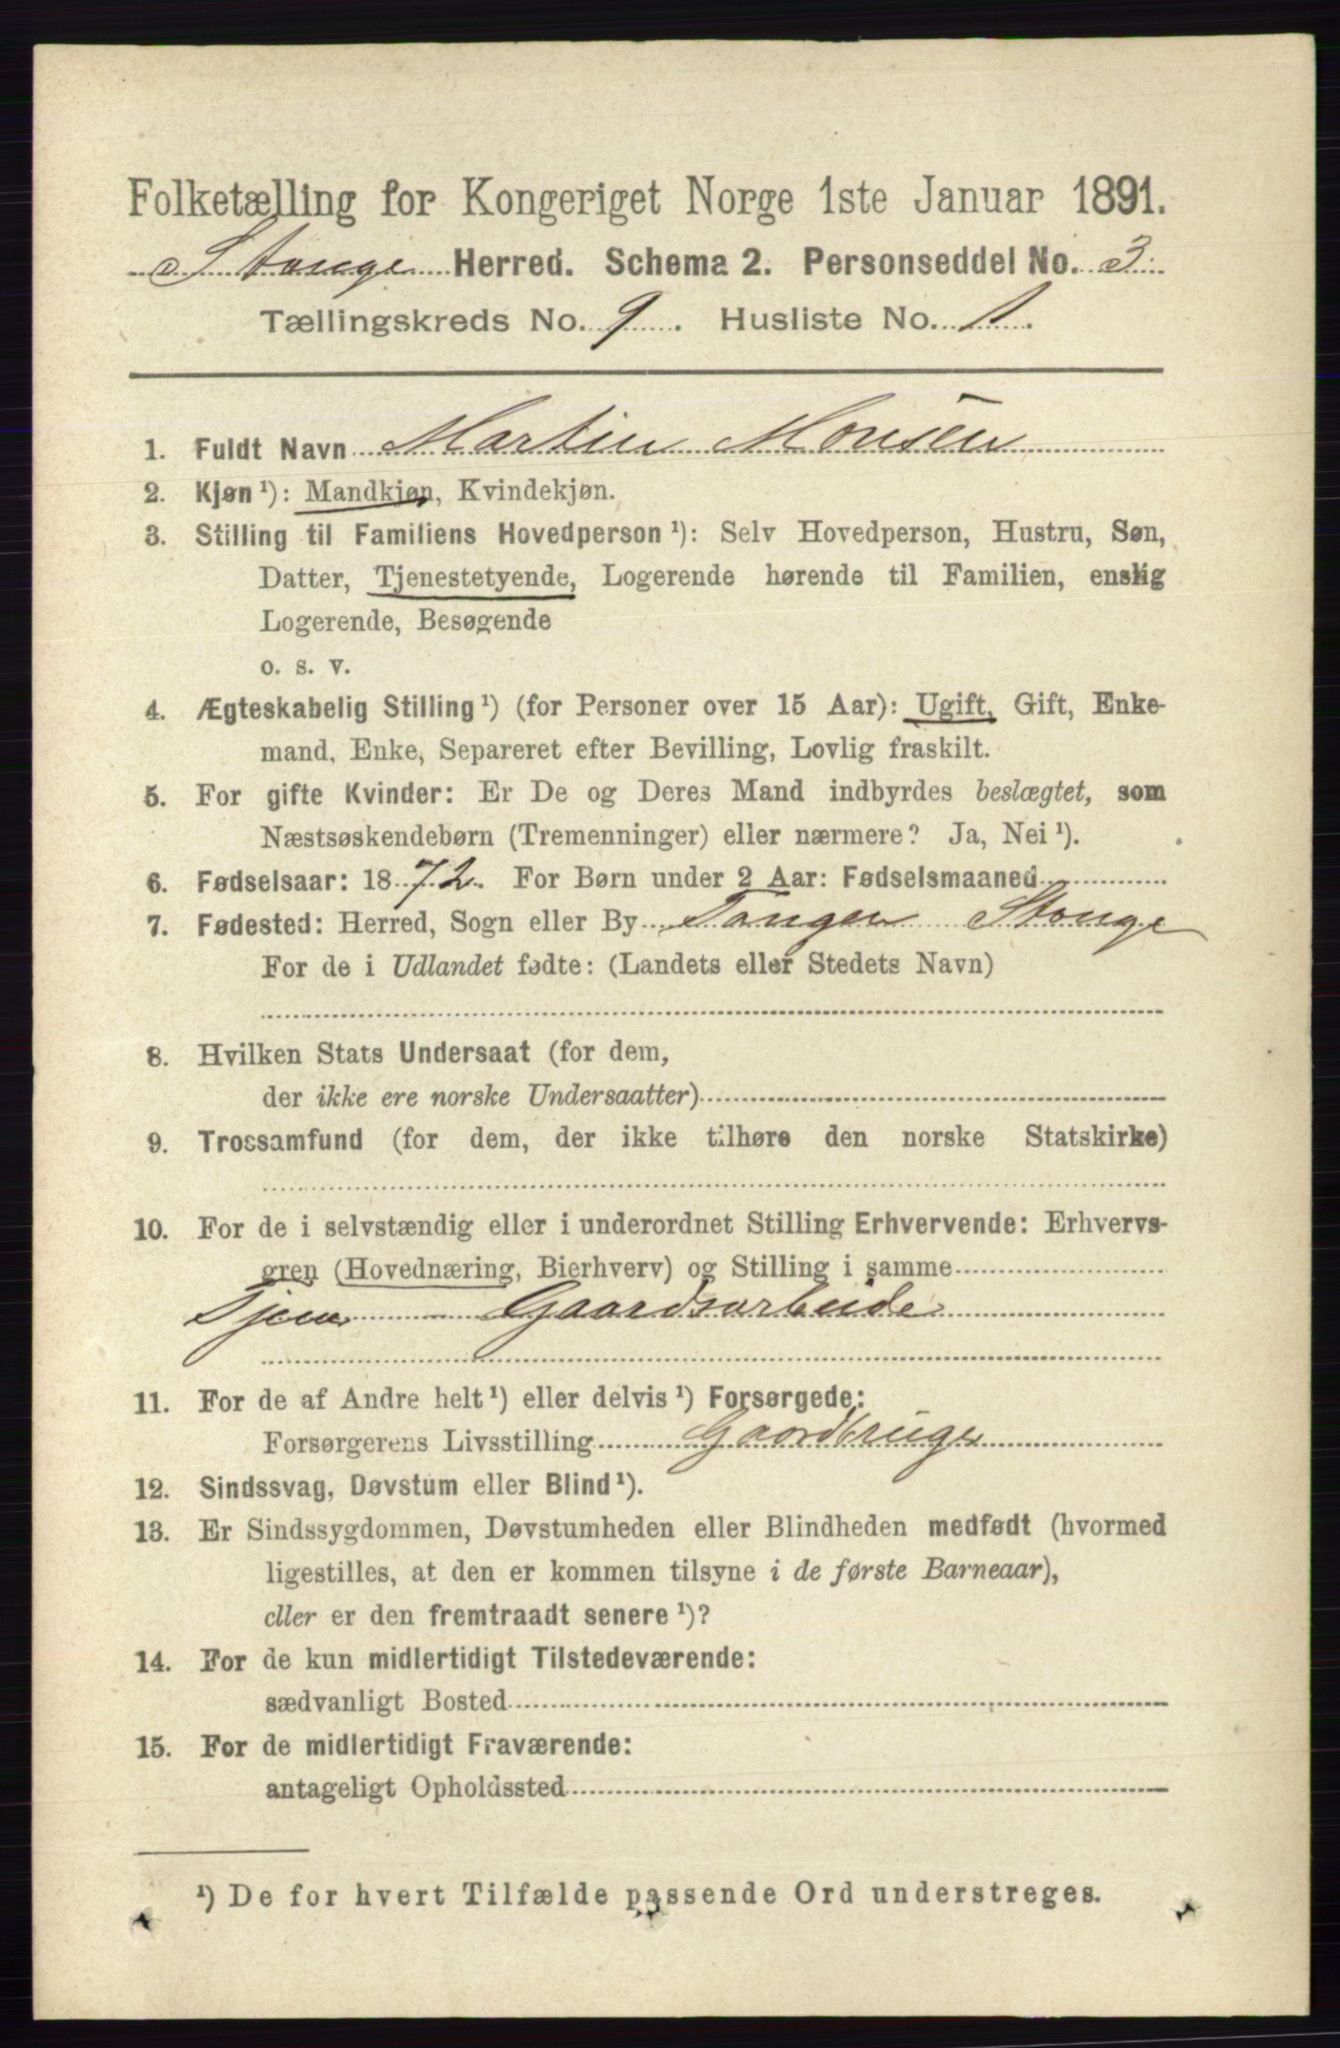 Folketælling for Kongeriget Norge 1ste Januar 1891.
Stange Herred. Schema 2. Personseddel No. 3
Tællingskreds No. 9. Husliste No. 1.
1. Fuldt Navn Martin Monsen
2. Kjøn ¹): Mandkjøn, Kvindekjøn.
3. Stilling til Familiens Hovedperson ¹): Selv Hovedperson, Hustru, Søn,
Datter, Tjenestetyende, Logerende hørende til Familien, enslig
Logerende, Besøgende
o. s. v.
4. Ægteskabelig Stilling ¹) (for Personer over 15 Aar): Ugift, Gift, Enke-
mand, Enke, Separeret efter Bevilling, Lovlig fraskilt.
5. For gifte Kvinder: Er De og Deres Mand indbyrdes beslægtet, som
Næstsøskendebørn (Tremenninger) eller nærmere? Ja, Nei ¹).
6. Fødselsaar: 1872. For Børn under 2 Aar: Fødselsmaaned
7. Fødested: Herred, Sogn eller By Tangen Stange
For de i Udlandet fødte: (Landets eller Stedets Navn)
8. Hvilken Stats Undersaat (for dem,
der ikke ere norske Undersaatter)
9. Trossamfund (for dem, der ikke tilhøre den norske Statskirke)
10. For de i selvstændig eller i underordnet Stilling Erhvervende: Erhvervs-
gren (Hovednæring, Bierhverv) og Stilling i samme
Tjener Gaardsarbeide
11. For de af Andre helt ¹) eller delvis ¹) Forsørgede:
Forsørgerens Livsstilling Gaardbruger
12. Sindssvag, Døvstum eller Blind ¹).
13. Er Sindssygdommen, Døvstumheden eller Blindheden medfødt (hvormed
ligestilles, at den er kommen tilsyne i de første Barneaar),
eller er den fremtraadt senere ¹)?
14. For de kun midlertidigt Tilstedeværende:
sædvanligt Bosted
15. For de midlertidigt Fraværende:
antageligt Opholdssted
¹) De for hvert Tilfælde passende Ord understreges.